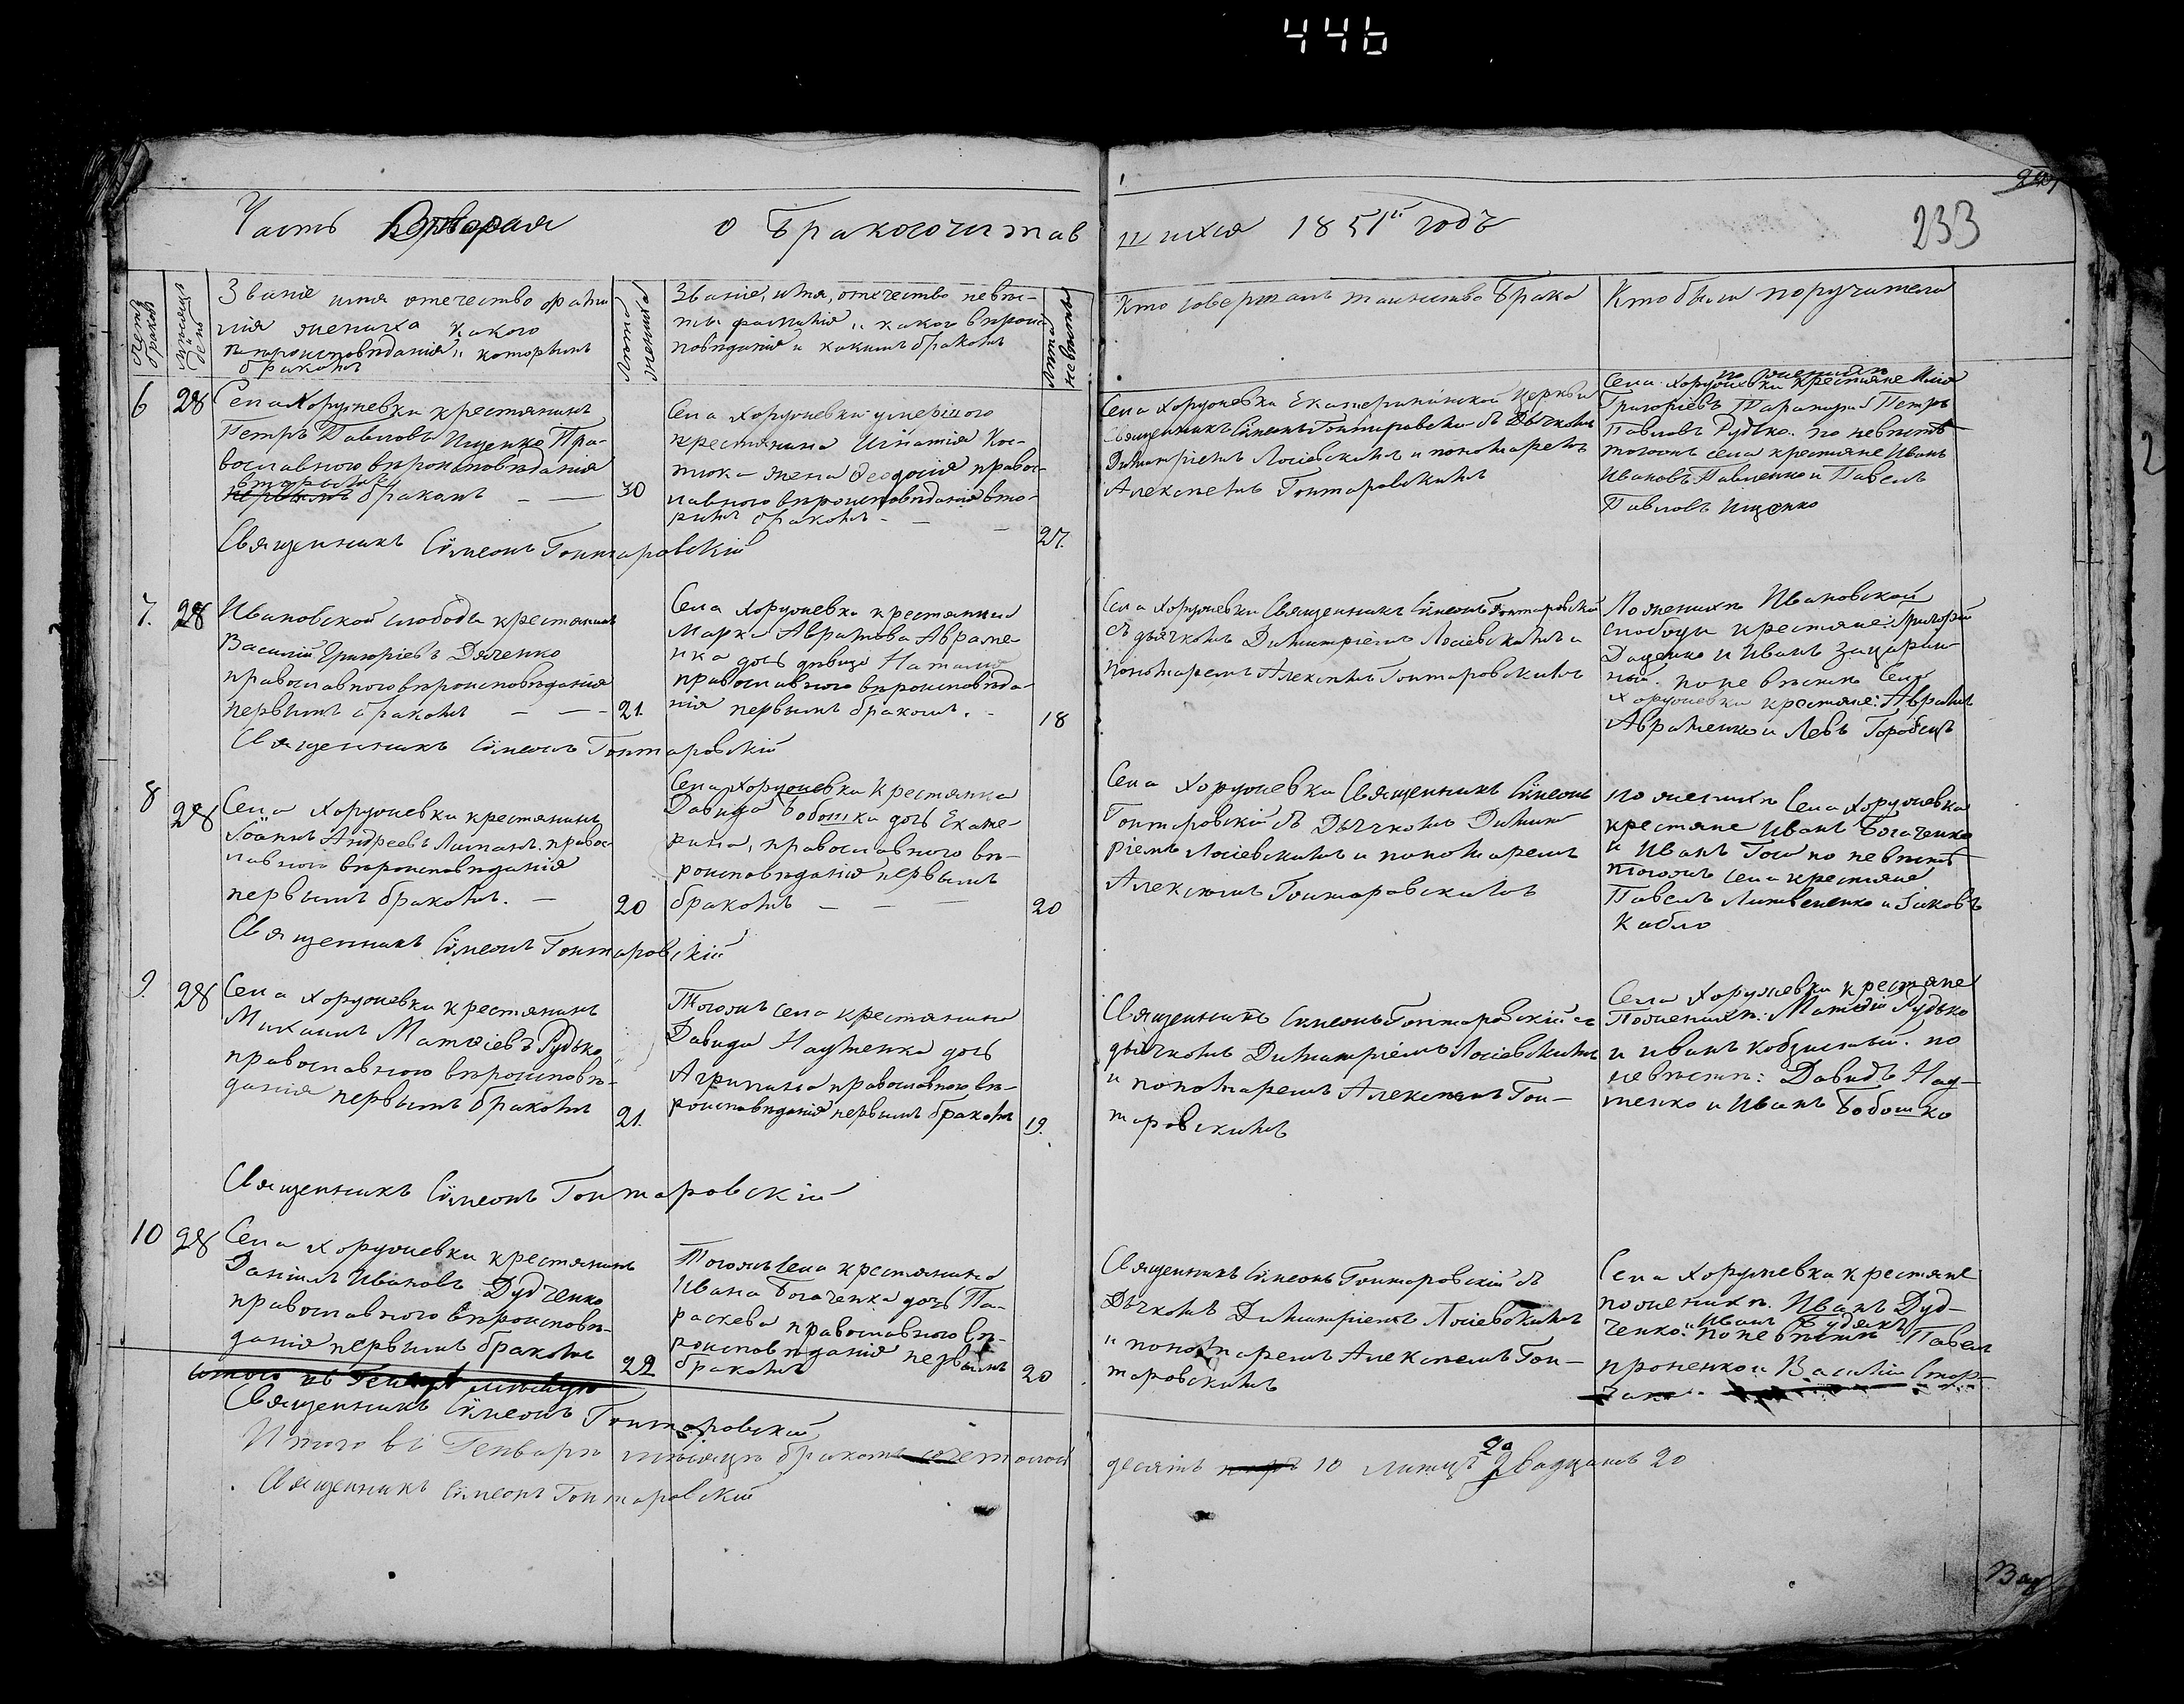 446
Часть Вторая о бракосочитав
шихся 1851й годъ
233
счетъ браковъ
мѣсяцъ и день
Званіе имя отечество фами
лія жениха какого
вѣроисповѣданія и которымъ
бракомъ
Лѣта жениха
Званіе, имя, отечество невѣс-
ты фамилія и какого вѣроис
повѣданія и какимъ бракомъ
Лѣта невѣсты
Кто совершалъ таинство брака
Кто были поручители
6
28
Села Хоружевки крестянинъ
Петръ Павловъ Ищенко Пра-
вославного вѣроисповѣданія
вторымъ
первымъ бракомъ
30
Села Хоружевки умершого
крестянина Игнатія Кос-
тюка жена Феодосія правос-
лавного вѣроисповѣданія вто-
римъ бракомъ
27.
Села Хоружевки Екатерининской Церкви
Священникъ Симеонъ Гонтаровскій съ Дьячкомъ
Димитріемъ Лосіевскимъ и пономаремъ
Алексѣемъ Гонтаровскимъ
по женихѣ
Села Хоружевки крестяне Илія
Григоріевъ Петръ
Павловъ Рудько. по невѣстѣ
тогожъ села крестяне Иванъ
Ивановъ Павленко и Павелъ
Павловъ Ищенко
Священникъ Симеонъ Гонтаровскій
7.
28
Ивановской слободы крестянинъ
Василій Григоріевъ Дяченко
православного вѣроисповѣданія
первымъ бракомъ
21.
Села Хоружевки крестянина
Марка Аврамова Авраме-
нка дочь дѣвица Наталия
православного вѣроисповѣда-
нія первымъ бракомъ.
18
Села Хоружевки Священникъ Симеонъ Гонтаровскій
съ дьячкомъ Димитріемъ Лосіевскимъ и
пономаремъ Алексѣемъ Гонтаровскимъ
По женихѣ Ивановской
слободы крестяне: Григорій
Даценко и Иванъ
по невѣстѣ Села
Хоружевки крестяне: Аврамъ
Авраменко и Левъ Горобецъ
Священникъ Симеонъ Гонтаровскій
8
28
Села Хоружевки крестянинъ
Іоаннъ Андреевъ правос-
лавного вѣроисповѣданія
первымъ бракомъ.
20
Села Хоружевки крестянина
Давида Бобошки дочь Екате-
рина, православного вѣ-
роисповѣданія первымъ
бракомъ
20
Села Хоружевки Священникъ Симеонъ
Гонтаровскій съ Дьячкомъ Димит
ріемъ Лосіевскимъ и пономаремъ
Алексѣемъ Гонтаровскимъ
по женихѣ Села Хоружевки
крестяне Иванъ Богаченко
и Иванъ по невѣстѣ
тогожъ села крестяне
Павелъ Литвененко и Іаковъ
Кабло
Священникъ Симеонъ Гонтаровскій
9.
28
Села Хоружевки крестянинъ
Михаилъ Матѳіевъ Рудько
православного вѣроисповѣ-
данія первымъ бракомъ
21.
Тогожъ села крестянина
Давида Надтенка дочь
Агрипина православного вѣ-
роисповѣданія первымъ бракомъ
19.
Священникъ Симеонъ Гонтаровскій съ
дьячкомъ Димитріемъ Лосіевскимъ
и пономаремъ Алексѣемъ Гон-
таровскимъ
Села Хоружевки крестяне
По женихѣ: Матѳій Рудько
и Иванъ по
невѣстѣ: Давидъ Над-
тенко и Иванъ Бобошко
Священникъ Симеонъ Гонтаровскій
10
28
Села Хоружевки крестянинъ
Даніилъ Ивановъ Дудченко
православного вѣроисповѣ-
данія первымъ бракомъ
22
Тогожъ Села крестянина
Ивана Богаченка дочь Па-
раскева православного вѣ-
роисповѣданія первымъ
бракомъ
20
Священникъ Симеонъ Гонтаровскій съ
Дьячкомъ Димитріемъ Лосіевскимъ
и пономаремъ Алексѣемъ Гон-
таровскимъ
Села Хоружевки крестяне
по женихѣ. Иванъ Дуд-
ченко и Иванъ Будякъ
по невѣстѣ Павелъ
проненко и Василій
итого въ Генварѣ мѣсяцѣ
Священникъ Симеонъ Гонтаровскій
Итого въ Генварѣ мѣсяцѣ бракомъ
десять паръ 10 лицъ Двадцать 20
Священникъ Симеонъ Гонтаровскій